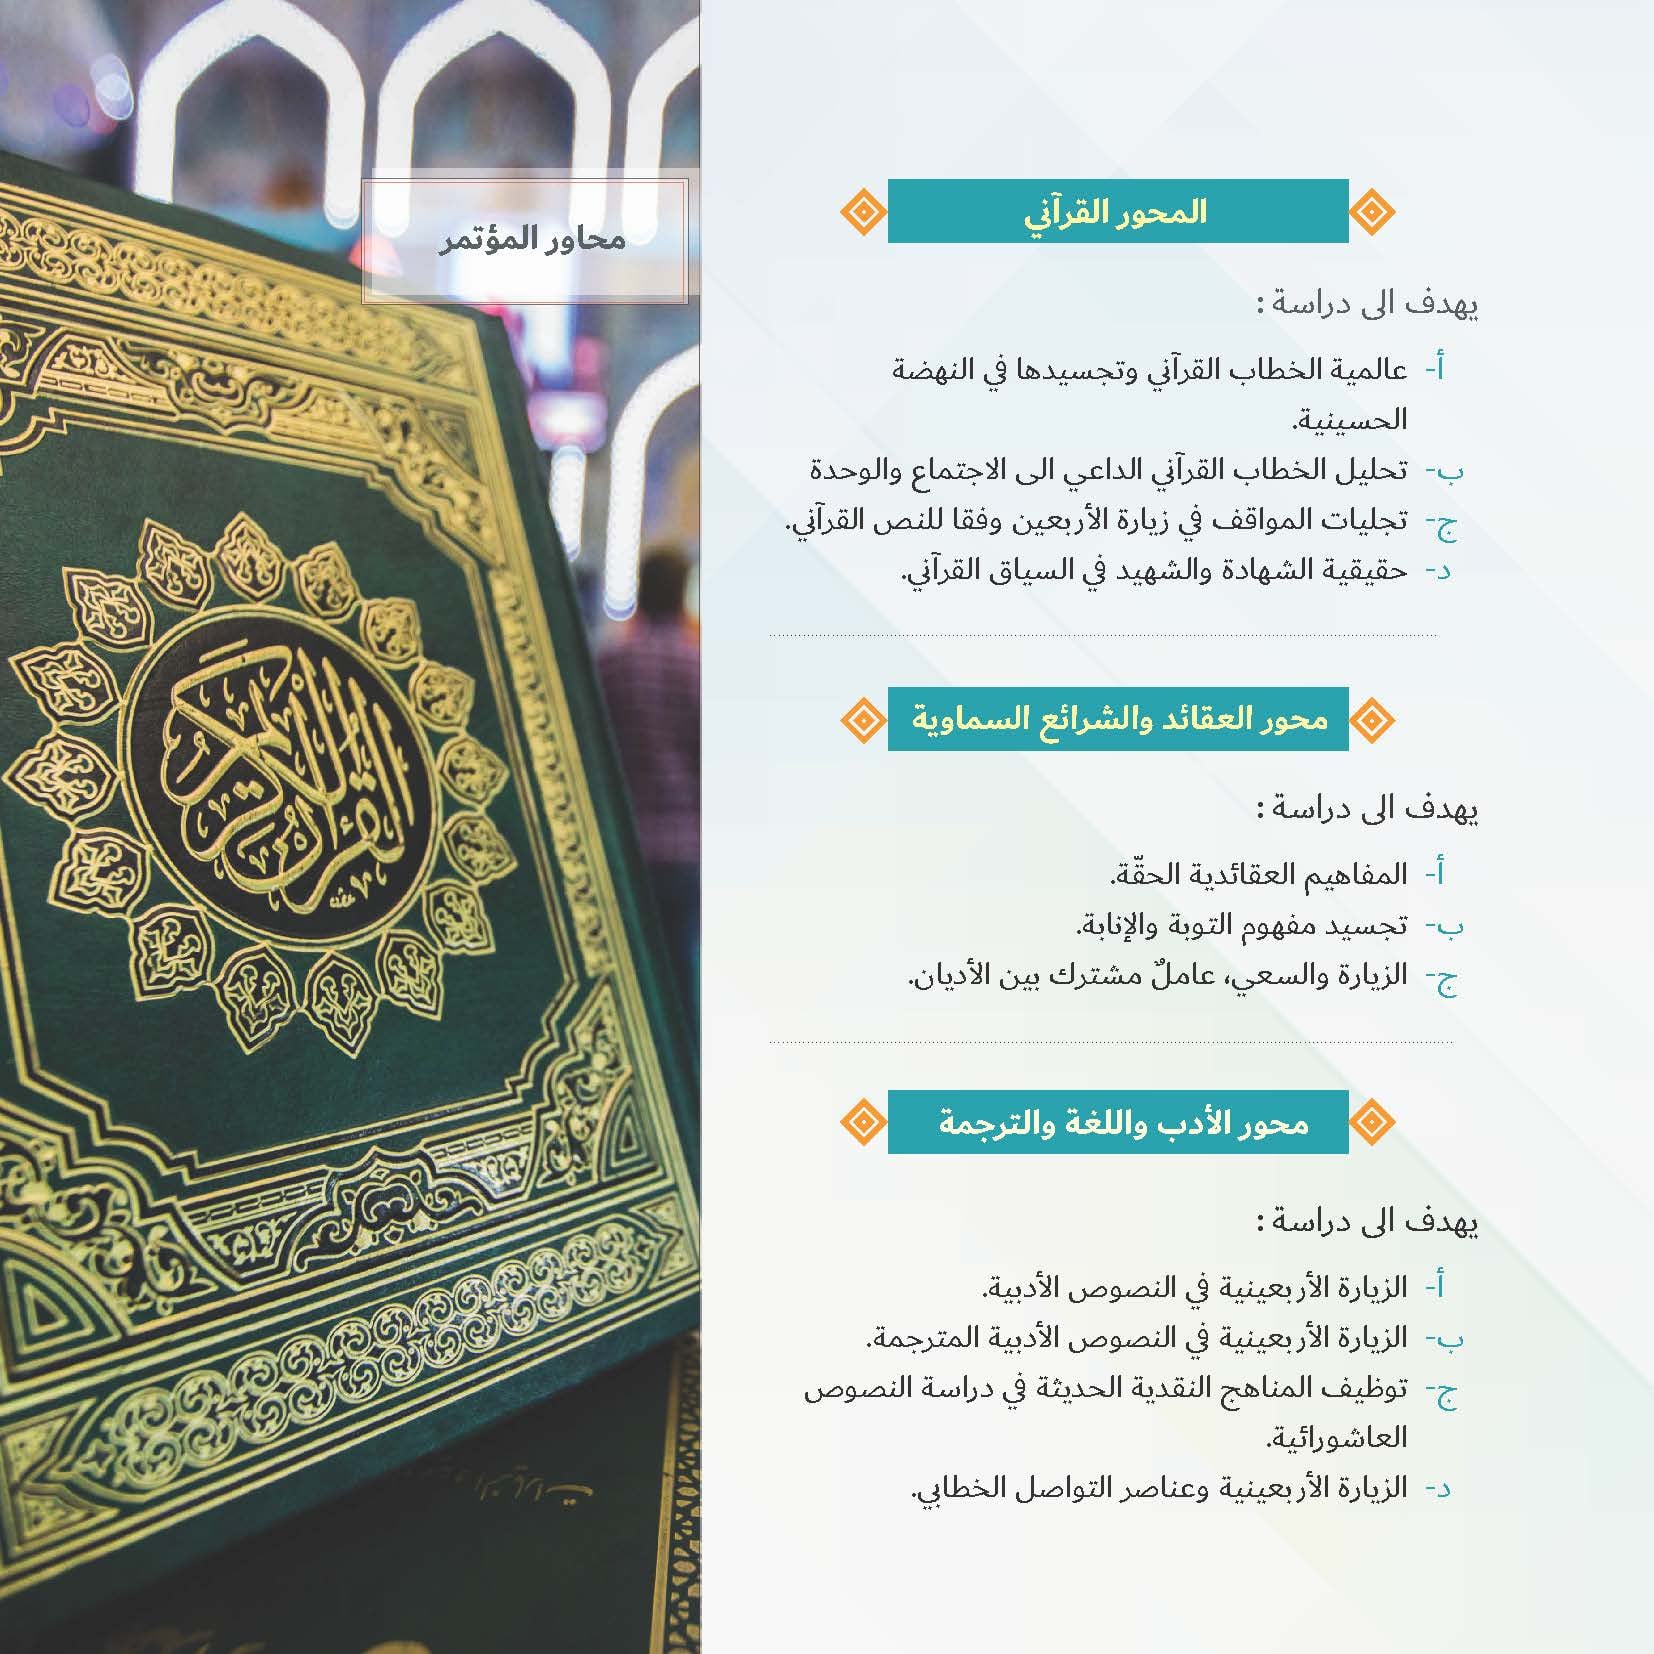 محاور المؤتمر
المحور القرآني
يهدف الى دراسة :
أ- عالمية الخطاب القرآني وتجسيدها في النهضة
الحسينية.
ب- تحليل الخطاب القرآني الداعي الى الاجتماع والوحدة
ج- تجليات المواقف في زيارة الأربعين وفقا للنص القرآني.
د- حقيقية الشهادة والشهيد في السياق القرآني.
محور العقائد والشرائع السماوية
يهدف الى دراسة :
أ- المفاهيم العقائدية الحقّة.
ب- تجسيد مفهوم التوبة والإنابة.
ج- الزيارة والسعي، عاملٌ مشترك بين الأديان.
محور الأدب واللغة والترجمة
يهدف الى دراسة :
أ- الزيارة الأربعينية في النصوص الأدبية.
ب- الزيارة الأربعينية في النصوص الأدبية المترجمة.
ج- توظيف المناهج النقدية الحديثة في دراسة النصوص
العاشورائية.
د- الزيارة الأربعينية وعناصر التواصل الخطابي.
القرآن الكريم